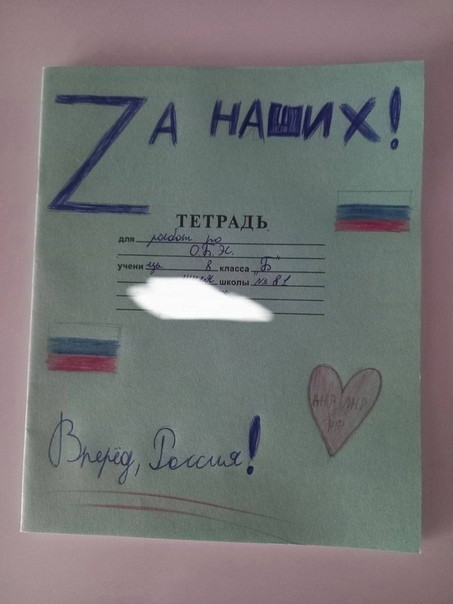 Zа наших!
ТЕТРАДЬ
для работ по
О.Б.Ж.
учени цы 8 класса "Б"
школы № 81
Вперёд, Россия!
ДНР ЛНР
РФ